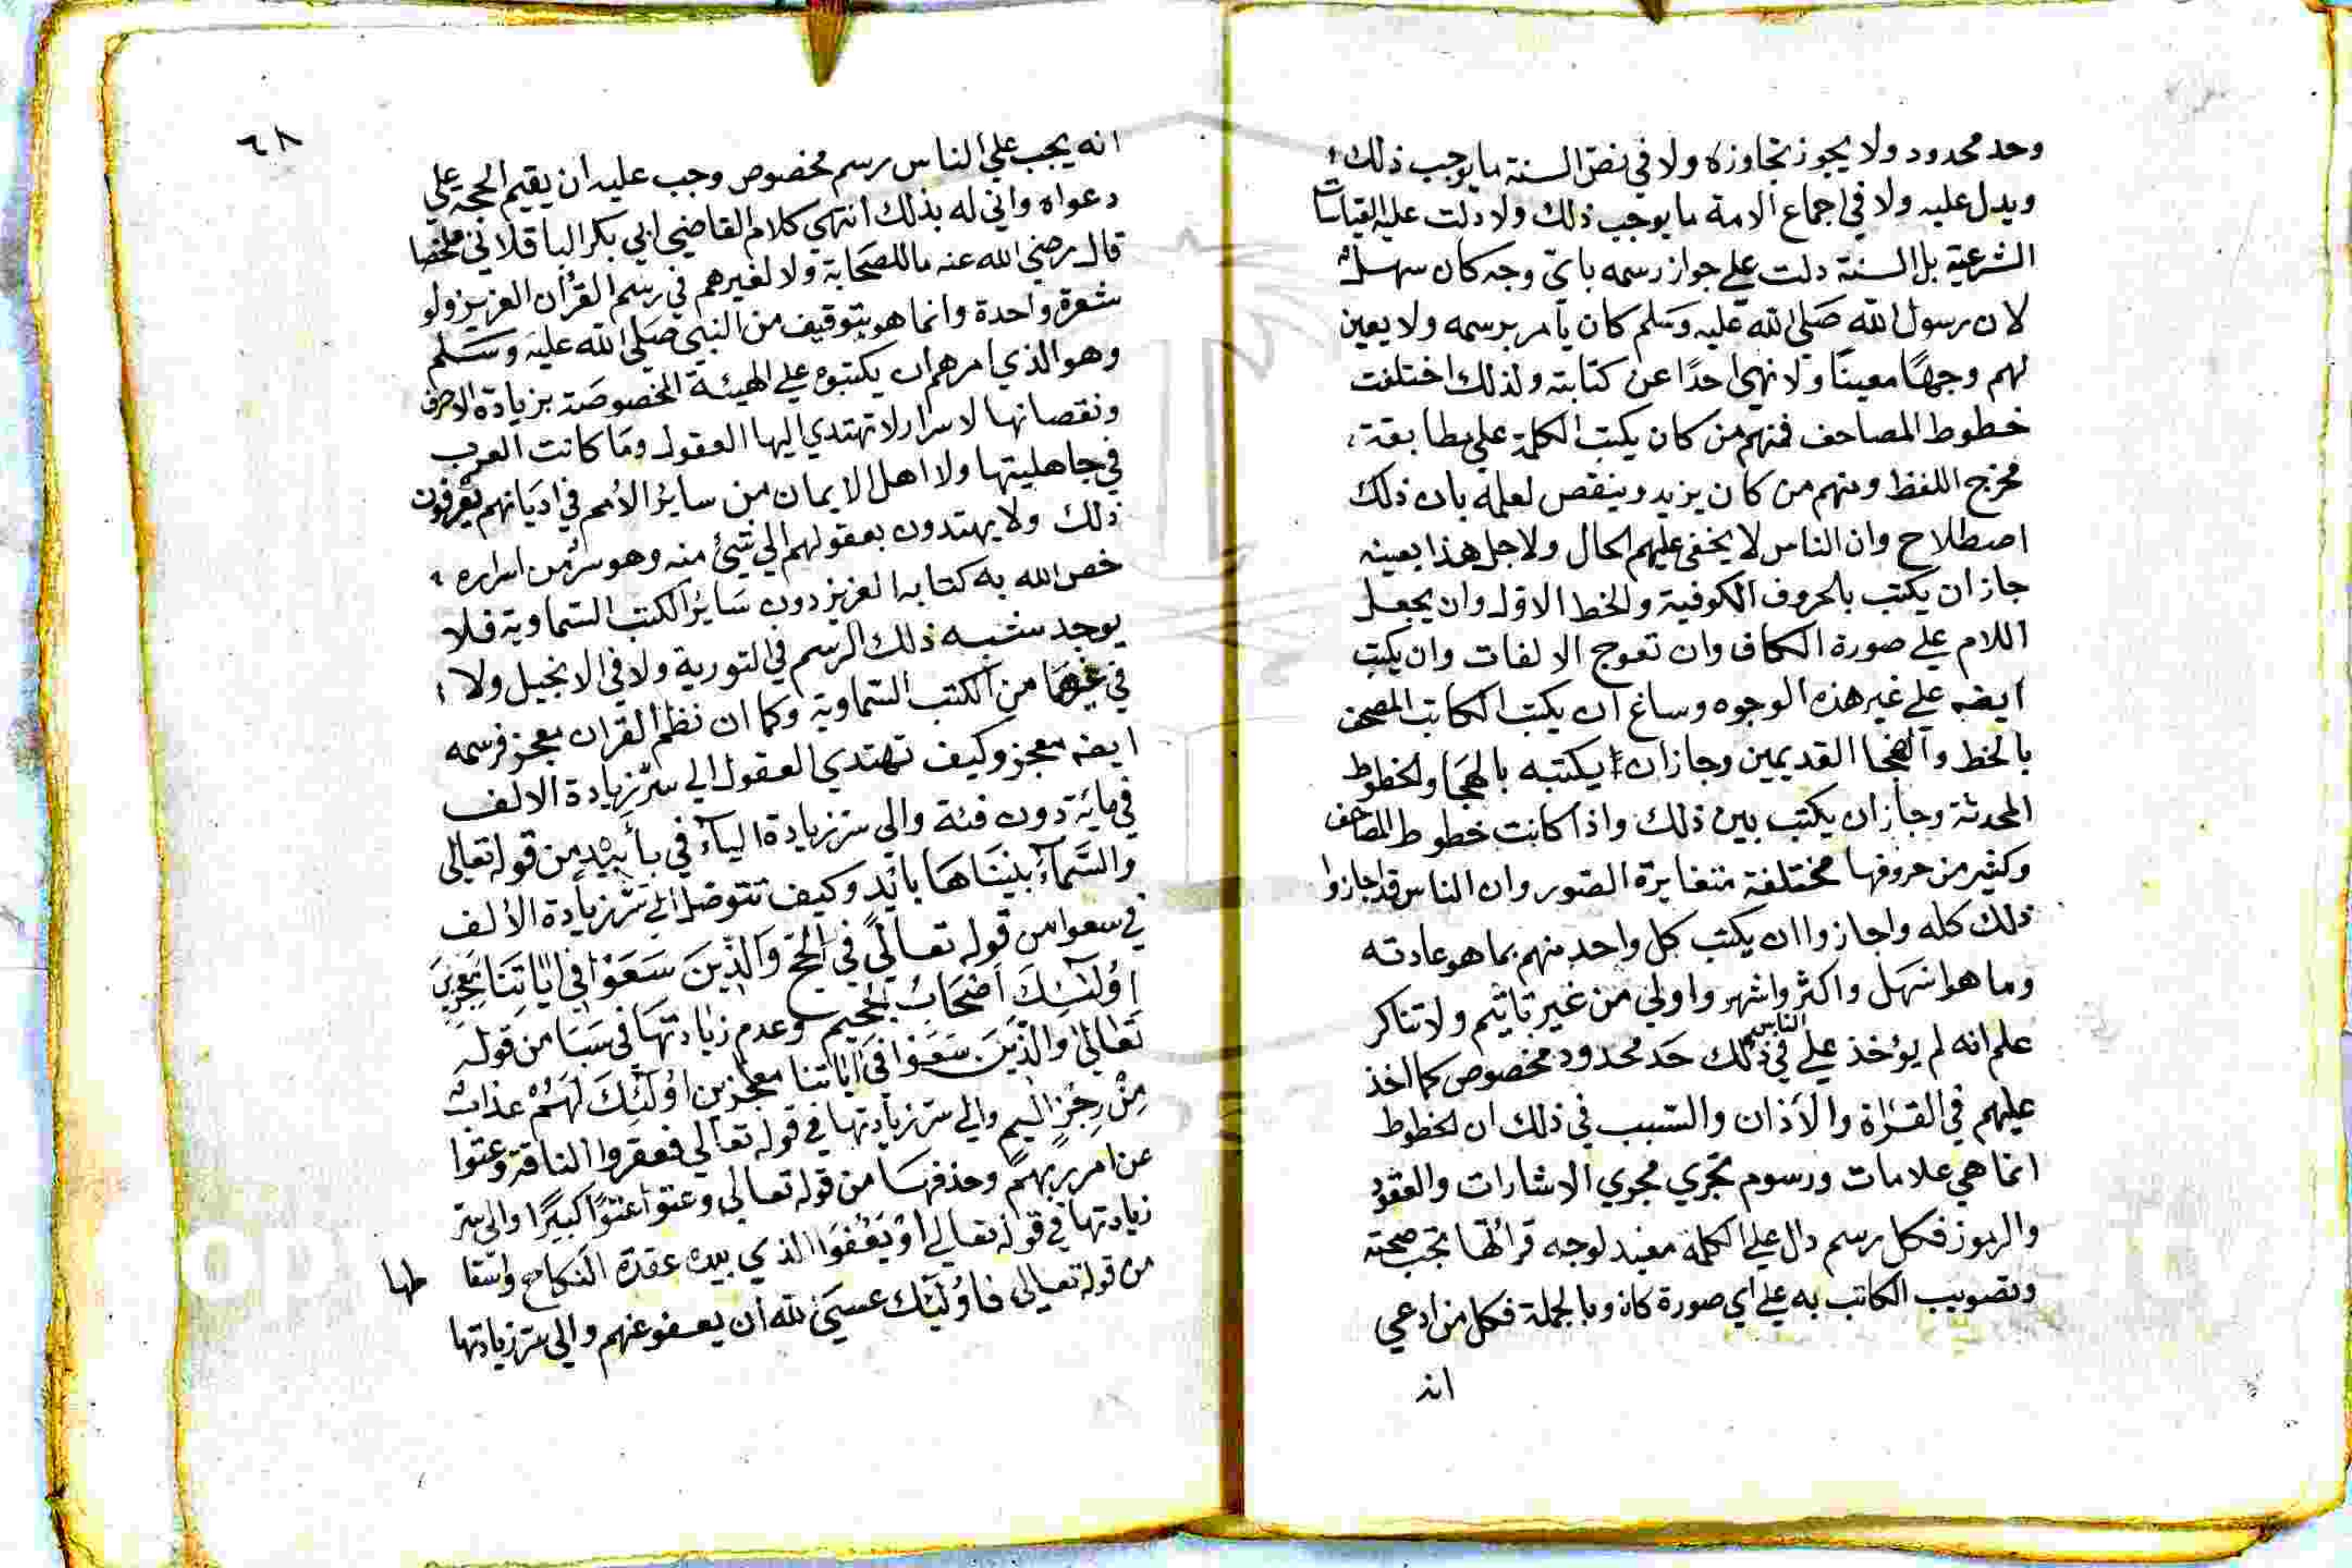 وحد محدود ولا يجوز تجاوزه ولا في نص السنة ما يوجب ذلك
ويدل عليه ولا في اجماع الامة ما يوجب ذلك ولا دلت عليه القياسات
الشرعية بل السنة دلت على جواز رسمه باي وجه كان سهل
لان رسول الله صلى الله عليه وسلم كان يامر برسمه ولا يعين
لهم وجهًا معينًا ولا نهى احدًا عن كتابته ولذلك اختلفت
خطوط المصاحف فمنهم من كان يكتب الكلمة على مطابقة
مخرج اللفظ ومنهم من كان يزيد وينقص لعلمه بان ذلك
اصطلاح وان الناس لا يخفى عليهم الحال ولاجل هذا بعينه
جاز ان يكتب بالحروف الكوفية والخط الاول وان يجعل
اللام على صورة الكاف وان تعوج الالفات وان يكتب
ايضه على غير هذه الوجوه وساغ ان يكتب الكاتب المصحف
بالخط والهجا القديمين وجاز ان يكتبه بالهجا والخطوط
المحدثة وجاز ان يكتب بين ذلك واذا كانت خطوط المصاحف
وكثير من حروفها مختلفة متغايرة الصور وان الناس قد اجازوا
ذلك كله واجازوا ان يكتب كل واحد منهم بما هو عادته
وما هو اسهل واكثر واشهر واولى من غير تاثيم ولا تناكر
علم انه لم يؤخذ على الناس في ذلك حد محدود مخصوص كما اخذ
عليهم في القراة والاذان والسبب في ذلك ان الخطوط
انما هي علامات ورسوم تجري مجري الاشارات والعقود
والرموز فكل رسم دال على الكلمة مفيد لوجه قرائتها تجب صحته
وتصويب الكاتب به على اي صورة كان وبالجملة فكل من ادعي
انه
٦٨
انه يجب علي الناس رسم مخصوص وجب عليه ان يقيم الحجة علي
دعواه واني له بذلك انتهي كلام القاضي ابي بكر الباقلاني ملخصا
قال رضي الله عنه ما للصحابة ولا لغيرهم في رسم القرآن العزيز ولو
شعرة واحدة وانما هو بتوقيف من النبي صلى الله عليه وسلم
وهو الذي امرهم ان يكتبوه على الهيئة المخصوصة بزيادة الاحرف
ونقصانها لاسرار لا تهتدي اليها العقول وما كانت العرب
في جاهليتها ولا اهل الايمان من سائر الامم في اديانهم يعرفون
ذلك ولا يهتدون بعقولهم الي شيئ منه وهو سر من اسراره
خص الله به كتابه العزيز دون سائر الكتب السماوية فلا
يوجد شبه ذلك الرسم في التورية ولا في الانجيل ولا
في غيرهما من الكتب السماوية وكما ان نظم القران معجز فرسمه
ايضه معجز وكيف تهتدي العقول الي سر زيادة الالف
في مائة دون فئة والى سر زيادة الياء في بأييد من قوله تعالى
والسماء بنيناها بأيد وكيف تتوصل الي سر زيادة الالف
في سعوا من قوله تعالى في الحج والذين سعوا في اياتنا معجزين
اولئك اصحاب الجحيم وعدم زيادتها في سبا من قوله
تعالى والذين سعوا في اياتنا معجزين اولئك لهم عذاب
من رجز اليم والي سر زيادتها في قوله تعالي فعقروا الناقة وعتوا
عن امر ربهم وحذفها من قوله تعالى وعتوا عتوًا كبيرًا والى سر
زيادتها في قوله تعالي او يعفوا الذي بيده عقدة النكاح واسقا طها
من قوله تعالى فاولئك عسى الله ان يعفو عنهم والي سر زيادتها